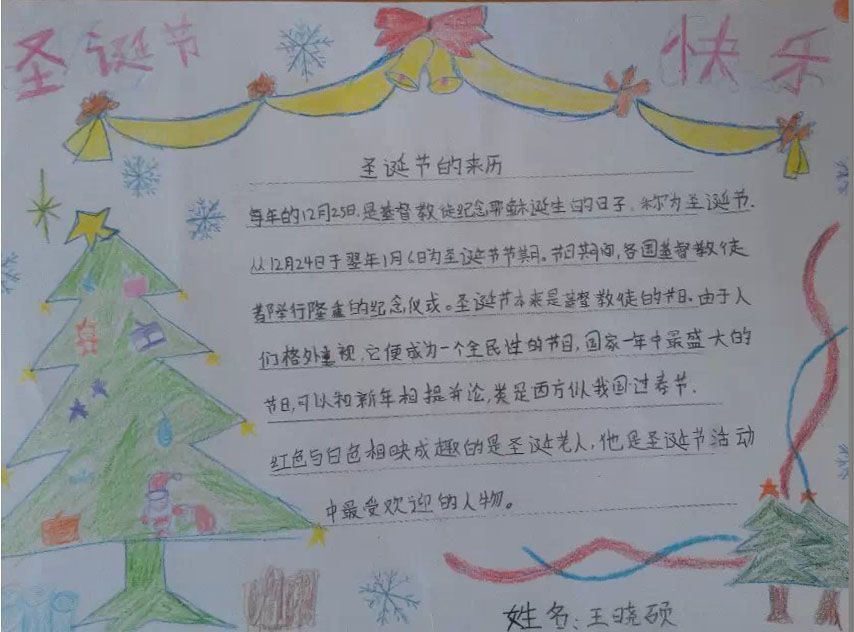 圣诞节 快乐
圣诞节的来历
每年的12月25日,是基督教徒纪念耶稣诞生的日子,称为圣诞节.
从12月24日于翌年1月6日为圣诞节节期。节日期间,各国基督教徒
都举行隆重的纪念仪式。圣诞节本来是基督教徒的节日。由于人
们格外重视,它便成为一个全民性的节日,国家一年中最盛大的
节日,可以和新年相提并论,类是西方似我国过春节.
红色与白色相映成趣的是圣诞老人,他是圣诞节活动
中最受欢迎的人物。
姓名:王晓硕